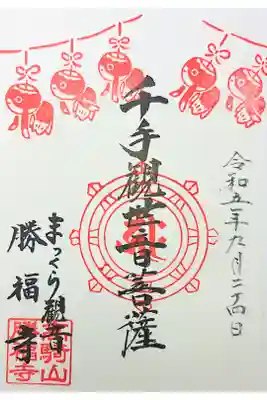 令和五年九月二十四日
千手觀世音菩薩
まつくら觀音
勝福寺
勝福寺